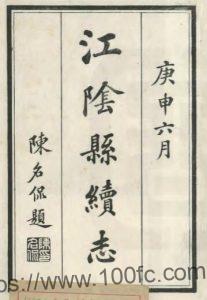 庚申六月
江陰縣續志
陳名侃題
https://www.100fc.com